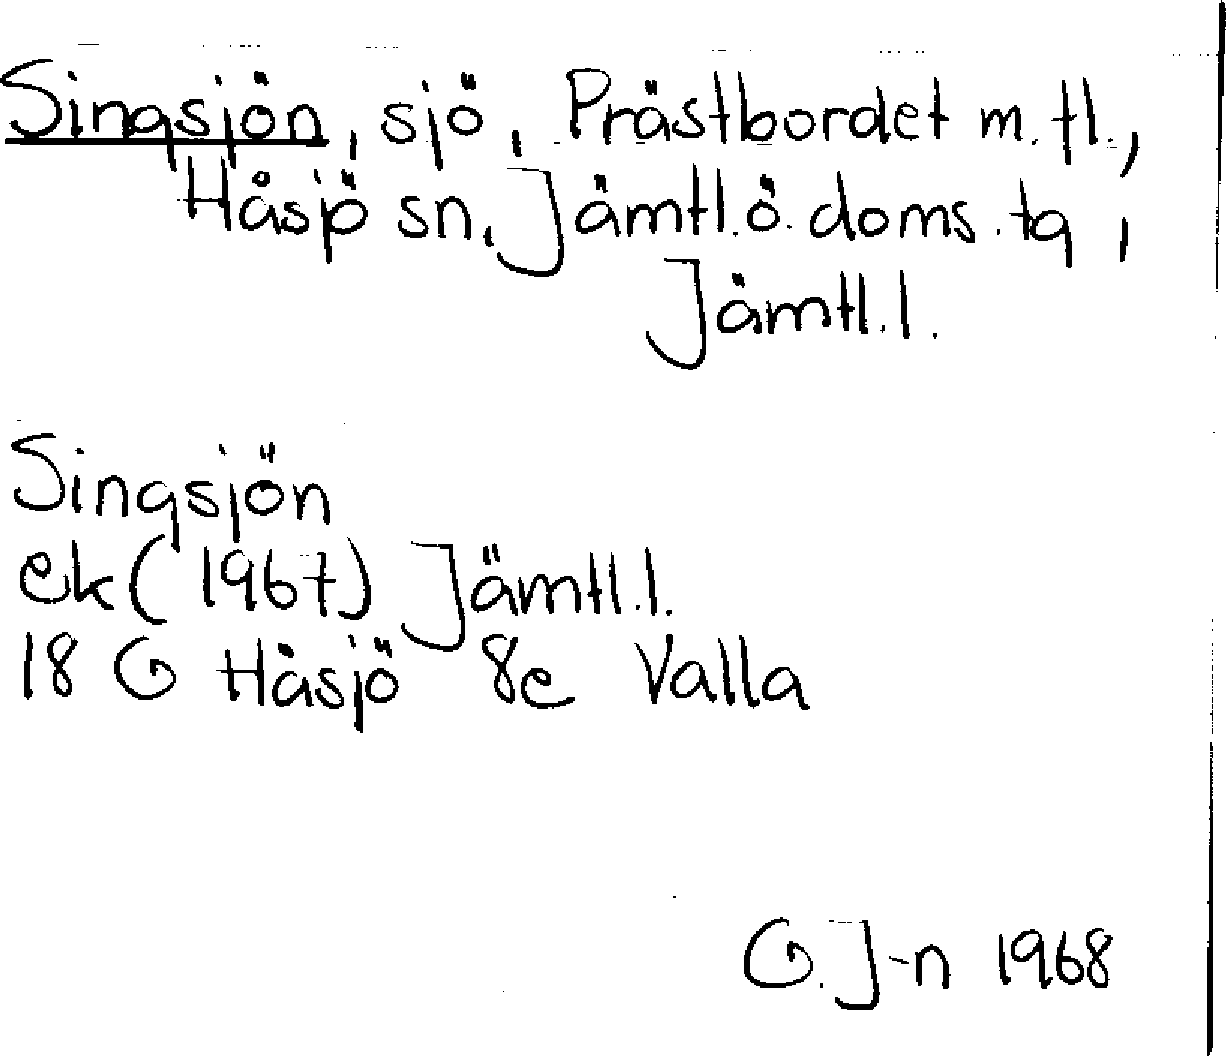 Singsjön, sjö, Prästbordet m.fl.,
Håsjö sn, Jämtl.ö.doms.tg,
Jämtl.l.
Singsjön
ek (1967) Jämtl.l.
18 G Håsjö 8e Valla
G.J-n 1968